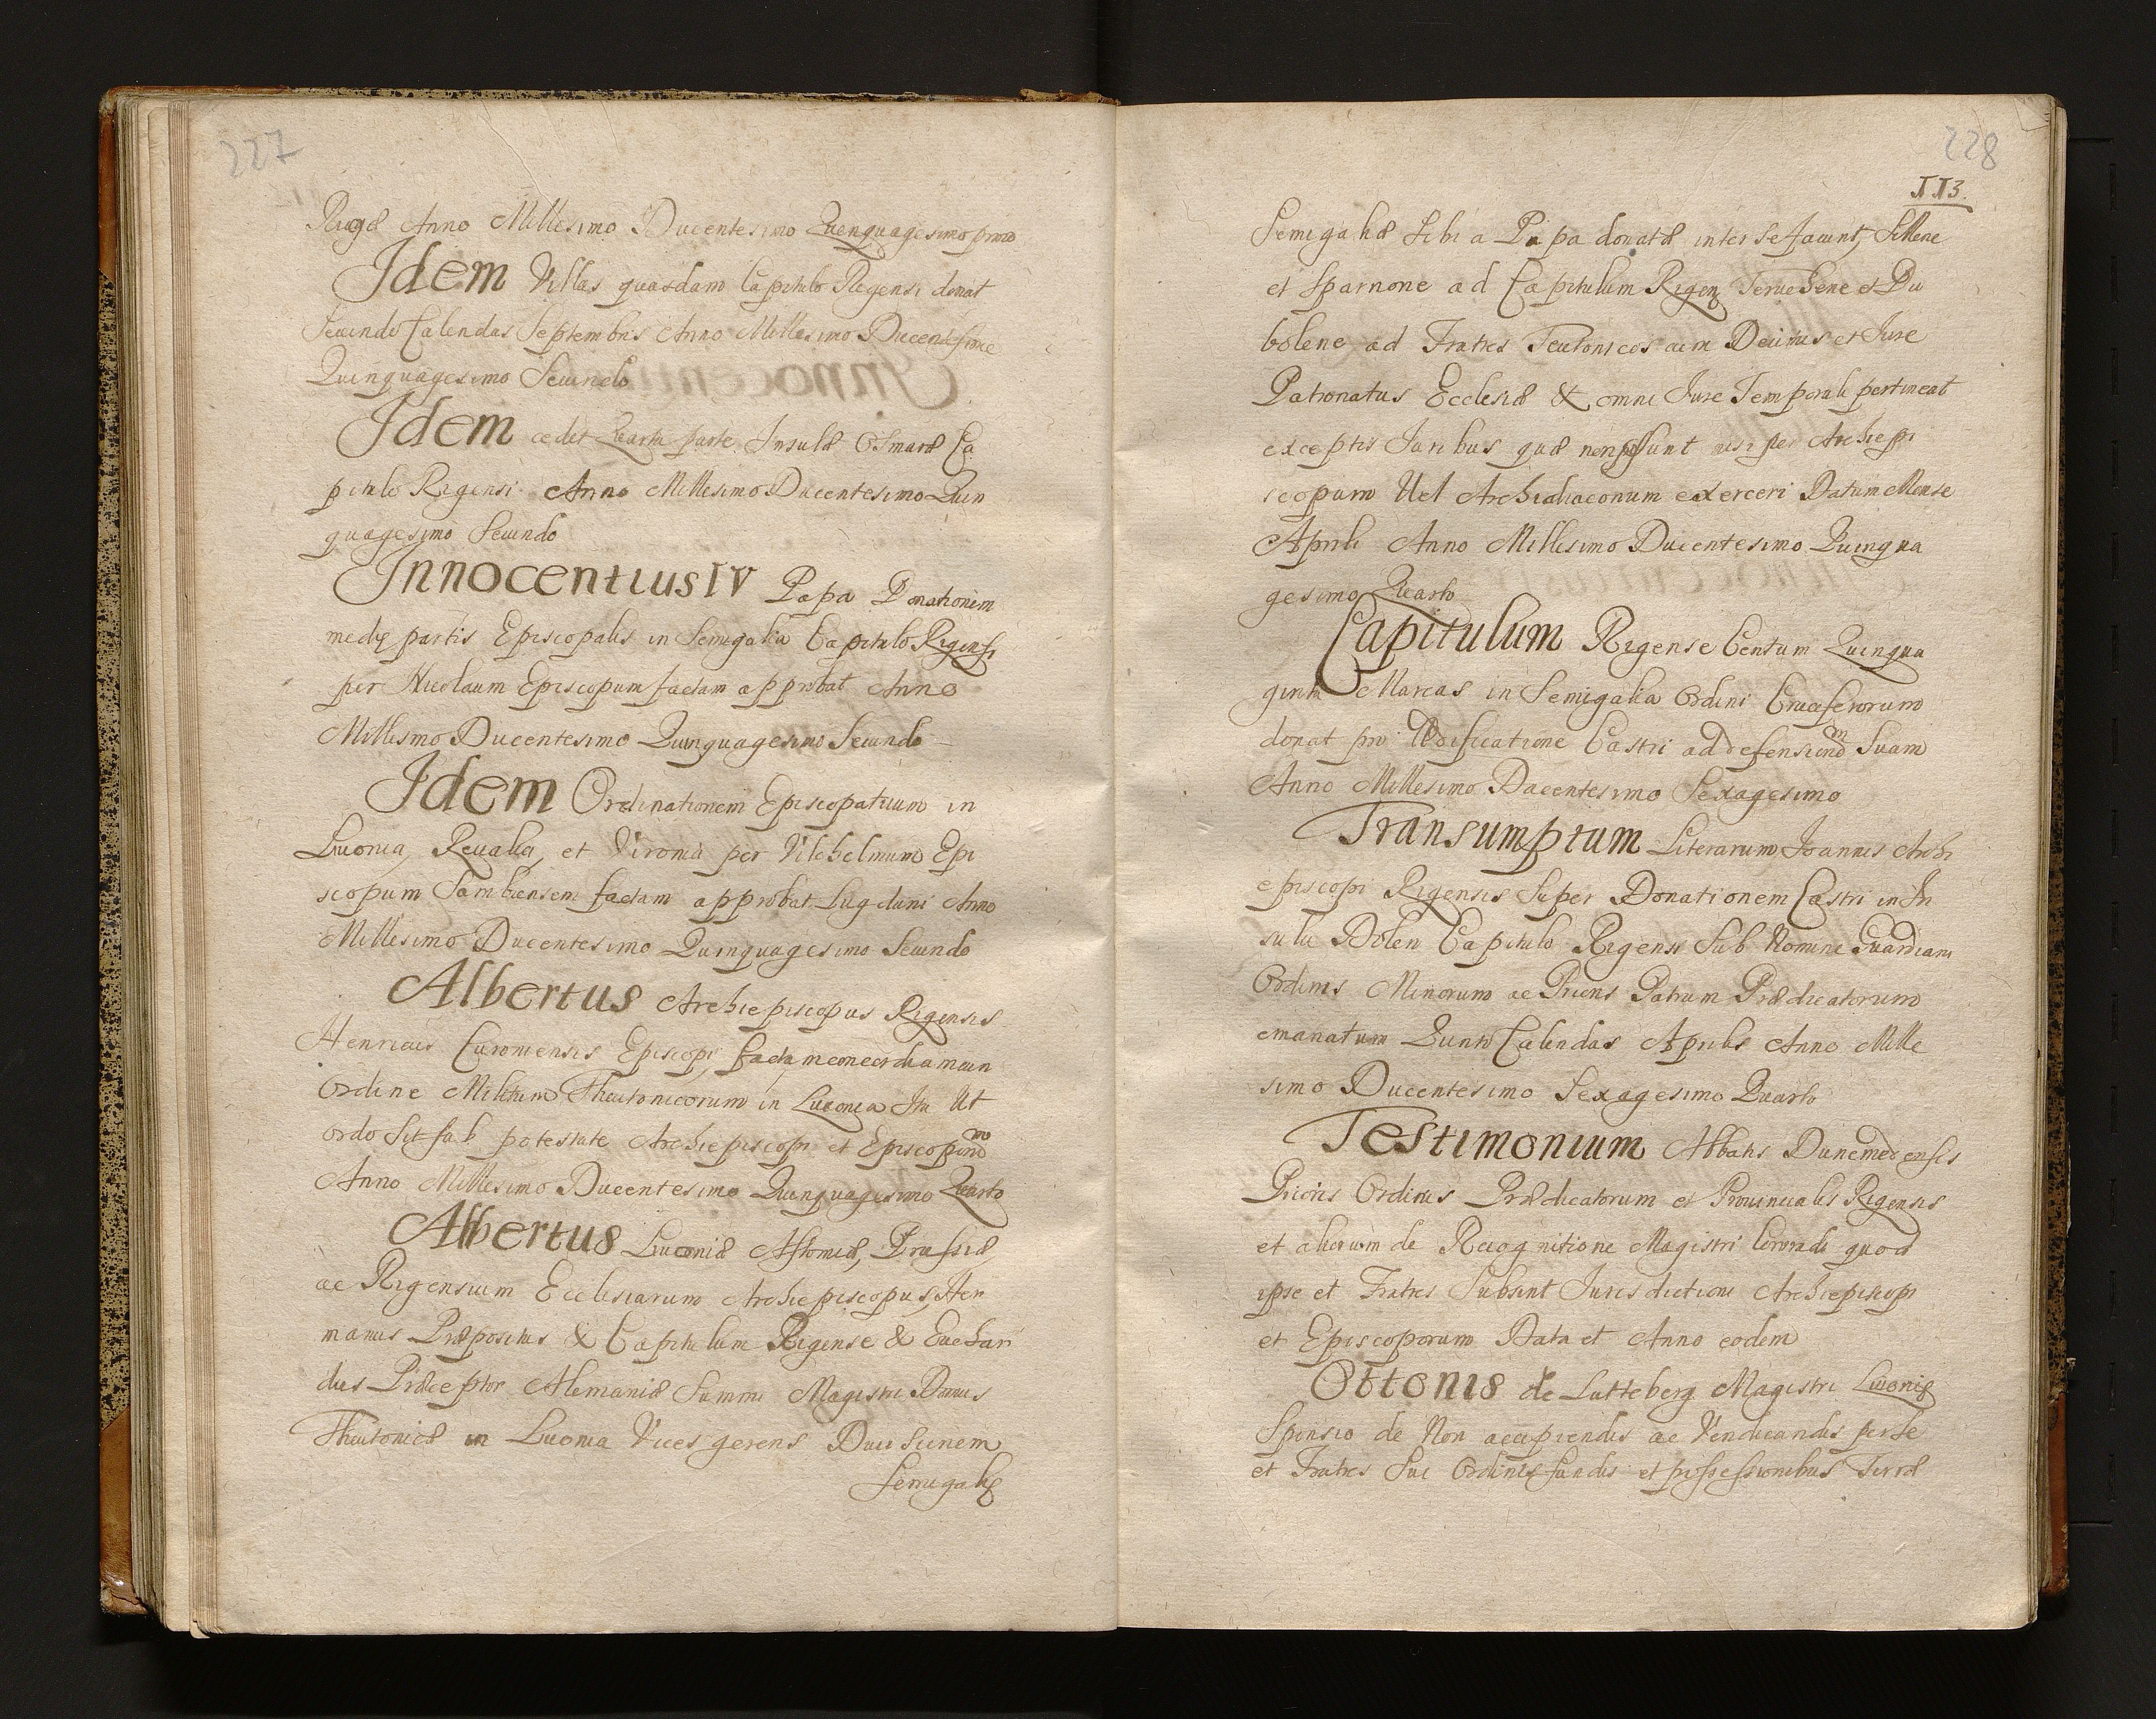 227
Rigæ Anno Millesimo Ducentesimo Quenquagesimo primo
Idem Villas quasdam Capitulo Regensi donat
Secundo Calendas Septembris Anno Millesimo Ducentesimo
Quinquagesimo Secundo
Idem cedit Quarta parte Insulæ Osmaræ Ca
pitulo Rigensi Anno Millesimo Ducentesimo Quin
quagesimo Secundo
Innocentius IV Papa Donationem
mediæ partis Episcopalis in Semigalia Capitulo Rigensi
per Nicolaum Episcopum factam approbat Anno
Millesimo Ducentesimo Quinquagesimo Secundo
Idem Ordinationem Episcopatuum in
Livonia, Revalia, et Vironia per Vilehelmum Epi
scopum Sambiensem factam approbat Lugduni Anno
Millesimo Ducentesimo Quinquagesimo Secundo
Albertus Archiepiscopus Rigensis
Henricus Curoniensis Episcopi factam concordiam cum
Ordine Militum Theutonicorum in Livonia Ita Ut
ordo sit sub potestate Archiepiscopi et Episcoporum
Anno Millesimo Ducentesimo Quinquagesimo Quarto
Albertus Livoniæ Estoniæ, Prussiæ,
ac Rigensium Ecclesiarum Archiepiscopus, Her
manus Præpositus & Capitulum Rigense & Evehar
dus Præceptor Alemaniæ Summi Magistri Domus
Theutonicæ in Livonia Vices gerens Divisionem
Semigaliæ
228
113.
Semigaliæ Sibi a Papa donatæ inter se faciunt, Sillene
et Sparnone ad Capitulum Rigen Tervehene et Du
bolene ad Fratres Teutonicos cum Decimis et Jure
Patronatus Ecclesiæ & omni Jure Temporali pertineat
exceptis Juribus quæ non possunt nisi per Archiepi
scopum Vel Archidiaconum exerceri Datum Mense
Aprili Anno Millesimo Ducentesimo Quinqua
gesimo Quarto
Capitulum Rigense Centum Quinqua
ginta Marcas in Semigalia Ordini Cruciferorum
donat pro Ædificatione Castri ad defensionem Suam
Anno Millesimo Ducentesimo Sexagesimo
Transumptum Literarum Joannis Archi
episcopi Rigensis Super Donationem Castri in In
sula Dolen Capitulo Rigensi Sub Nomine Guardiani
Ordinis Minorum ac Prioris Patrum Prædicatorum
emanatum Quinto Calendas Aprilis Anno Mille
simo Ducentesimo Sexagesimo Quarto
Testimonium Abbatis Dunemedensis
Prioris Ordinis Prædicatorum et Provincialis Rigensis
et aliorum de Recognitione Magistri Conradi quod
ipse et Fratres Subsint Jurisdictioni Archiepiscopi
et Episcoporum Data et Anno eodem
Ottonis de Lutteberg Magistri Livoniæ
Sponsio de Non accipiendis ac Vendicandis per Se
et Fratres Sui Ordinis fundis et possessionibus Terræ